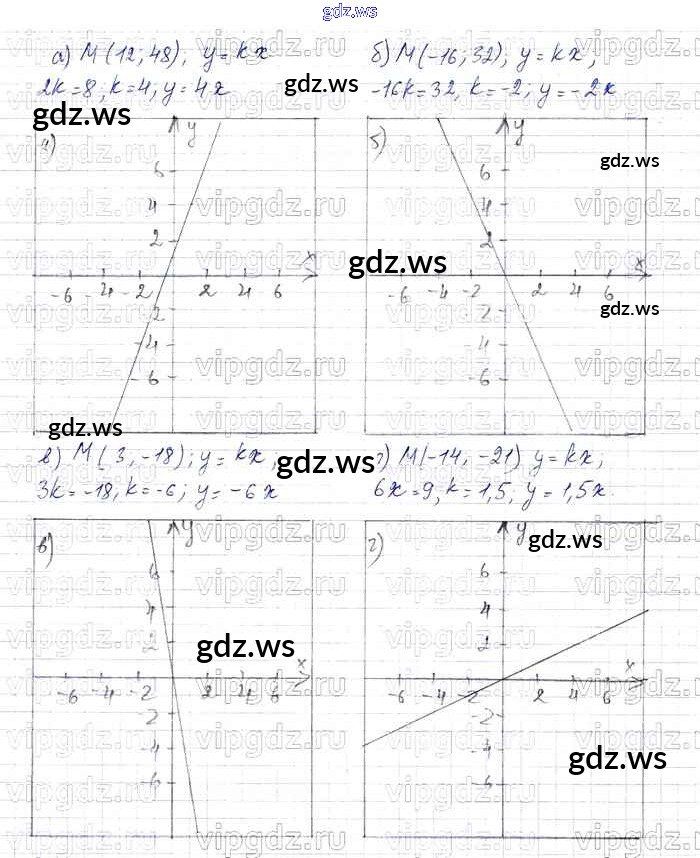 gdz.ws
а) М (12; 48); у = kx
2k = 8; k = 4; y = 4x
б) М (-16; 32); у = kx;
-16k = 32, k = -2; y = -2x
gdz.ws
gdz.ws
а)
y
x
6
4
2
-6 -4 -2 2 4 6
-2
-4
-6
б)
y
x
gdz.ws
6
4
2
gdz.ws
-6 -4 -2 2 4 6
gdz.ws
-2
-4
-6
gdz.ws
в) М (3, -18); у = kx;
3k = -18, k = -6; y = -6x
г) М(-14, -21) у = kx;
6x = 9, k = 1,5, y = 1,5x.
в)
y
x
6
4
2
gdz.ws
-6 -4 -2 2 4 6
-2
-4
-6
г)
y
gdz.ws
x
6
4
2
-6 -4 -2 2 4 6
-2
-4
-6
gdz.ws
vipgdz.ru